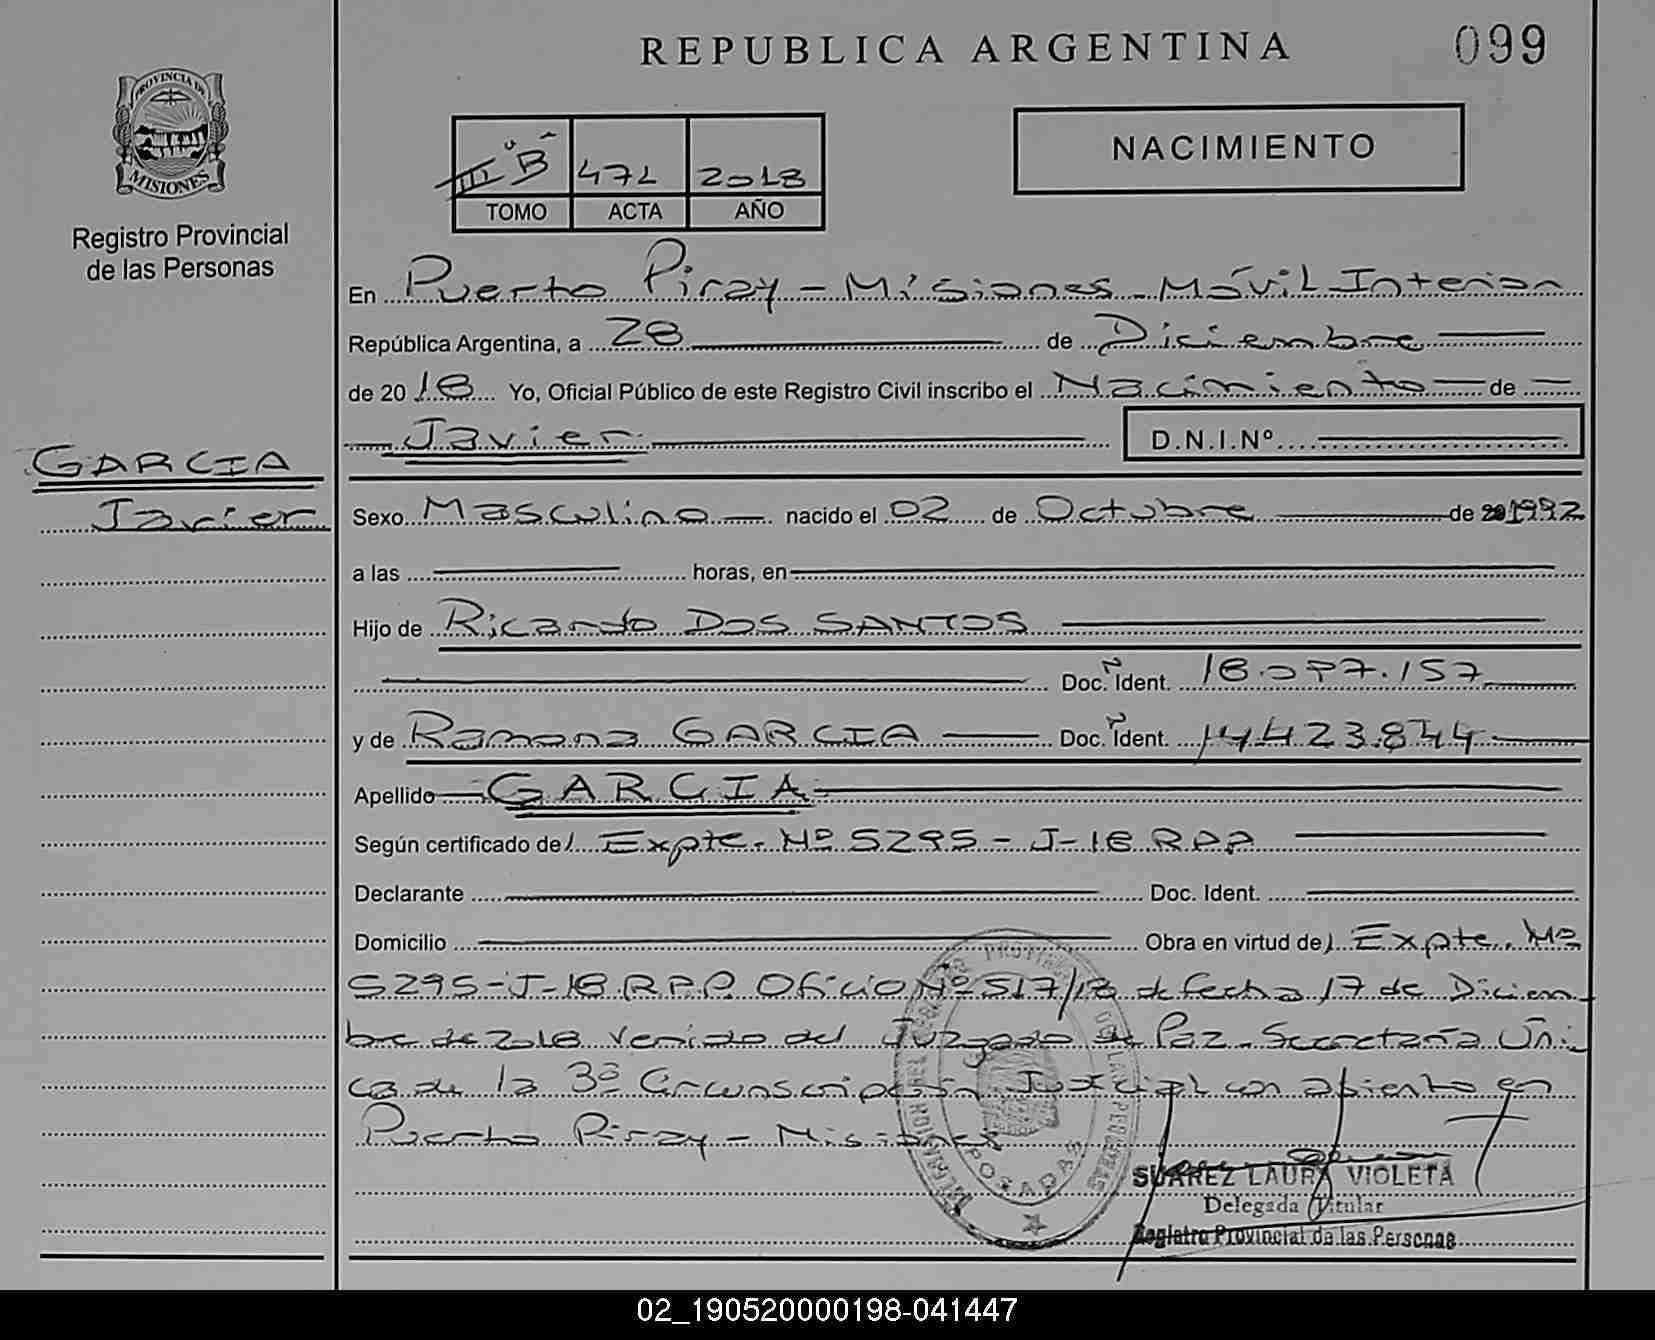 REPUBLICA ARGENTINA
099
PROVINCIA DE
MISIONES
Registro Provincial
de las Personas
III°B 471 2018
TOMO ACTA AÑO
NACIMIENTO
En Puerto Piray - Misiones - Móvil Interior
República Argentina, a 28 de Diciembre
de 2018 Yo, Oficial Público de este Registro Civil inscribo el Nacimiento de
Javier D.N.I.Nº
GARCIA
Javier
Sexo Masculino nacido el 02 de Octubre de 1992
a las horas, en
Hijo de Ricardo DOS SANTOS
Doc. Ident. 18.097.157
y de Ramona GARCIA Doc. Ident. 14.423.844
Apellido GARCIA
Según certificado de Expte. Nº 5295-J-18 RPP
Declarante Doc. Ident.
Domicilio Obra en virtud de Expte. Nº
5295-J-18 RPP. Oficio Nº 517/18 de fecha 17 de Diciem-
bre de 2018 venido del Juzgado de Paz - Secretaría Úni-
ca de la 3º Circunscripción Judicial con asiento en
Puerto Piray - Misiones
POSADAS
SUAREZ LAURA VIOLETA
Delegada Titular
Registro Provincial de las Personas
02_190520000198-041447